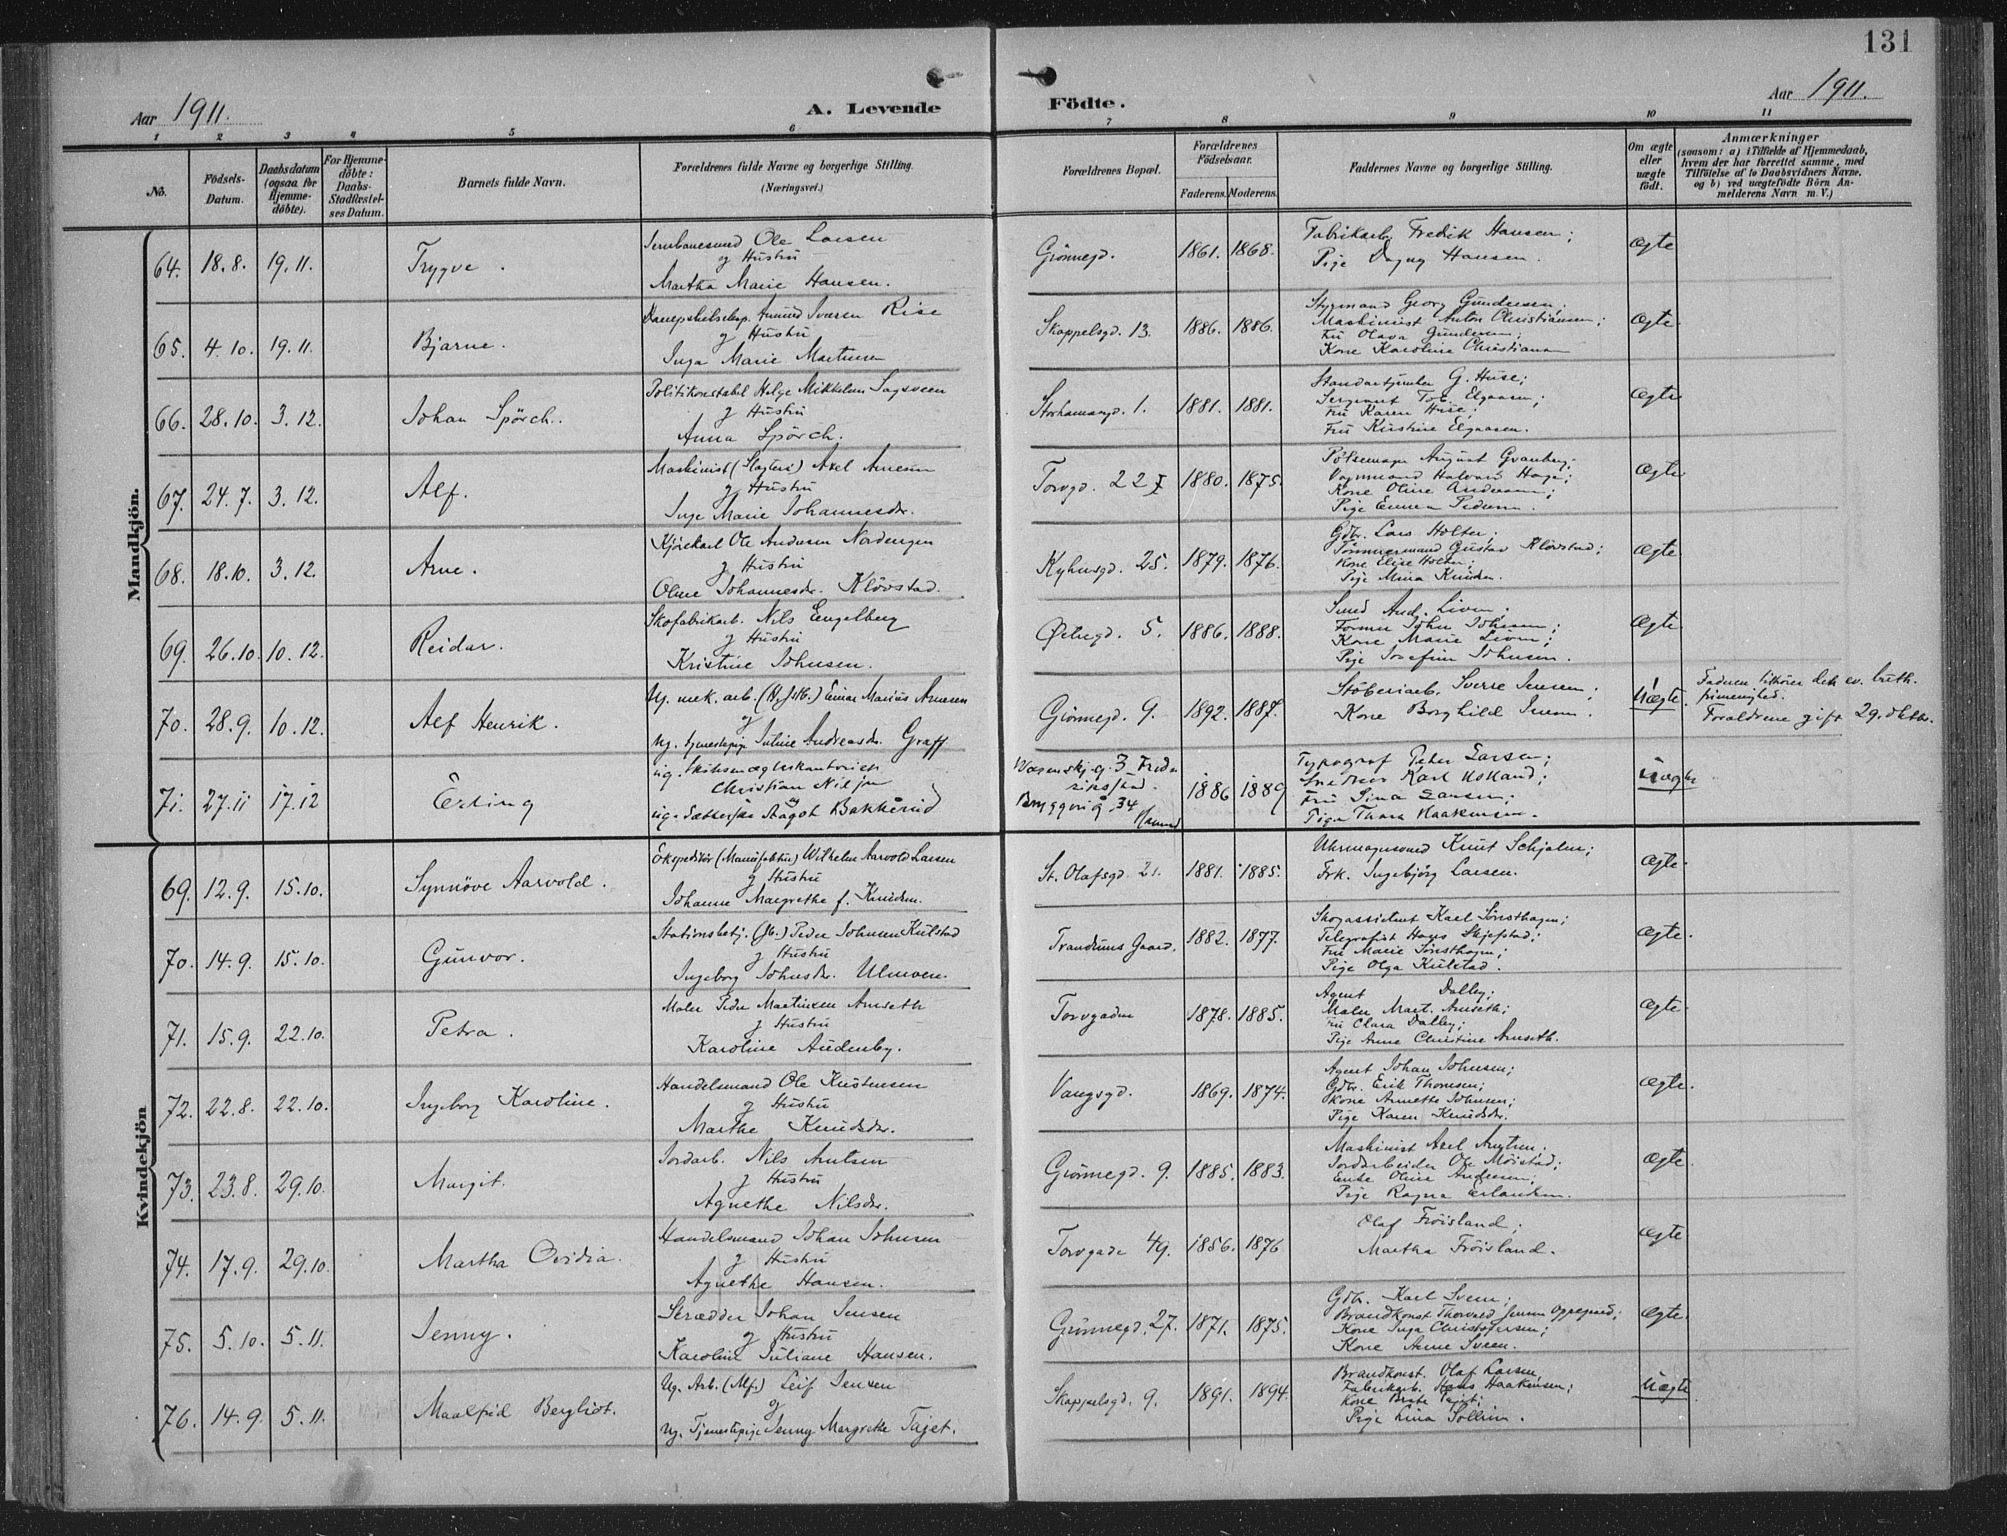 131
Aar 1911.
A. Levende Födte.
Aar 1911.
1 2 3 4 5 6 7 8 9 10 11
No.
Födsels-Datum.
Daabsdatum (ogsaa for Hjemme-döbte).
For Hjemme-döbte: Daabs-Stadfæstel-ses Datum.
Barnets fulde Navn.
Forældrenes fulde Navne og borgerlige Stilling. (Næringsvei.)
Forældrenes Bopæl.
Forældrenes Födselsaar.
Faderens. Moderens.
Faddernes Navne og borgerlige Stilling.
Om ægte eller uægte födt.
Anmærkninger
(saasom: a) i Tilfælde af Hjemmedaab, hvem der har forrettet samme, med Tilföielse af to Daabsvidners Navne, og b) ved uægtefödte Börn An-melderens Navn m. V.)
Mandkjön.
64. 18.8. 19.11. Trygve.
Jernbanemand Ole Larsen
og Hustru
Martha Marie Hansen.
Grønnegd. 1861. 1868.
Fabrikarb. Fredik Hansen;
Pige Dagny Hansen.
Ægte
65. 4.10. 19.11. Bjarne.
Iversen Rise
og Hustru
Inga Marie Martinsen
Skappelsgd. 13. 1886. 1886.
Styrmand Georg Gundersen;
Maskinist Anton Christiansen;
Fru Olava Gundersen;
Kone Karoline Christiansen
Ægte
66. 28.10. 3.12. Johan Spörch.
Politikonstabel Helge Mikkelsen Sagsveen
og Hustru
Anna Spörch.
Storhamargd. 1. 1881. 1881.
G. Huse;
Sergeant Tob. Elgaaen;
Fru Karen Huse;
Fru Kristine Elgaaen.
Ægte
67. 24.7. 3.12. Alf.
Maskinist (Slagteri) Axel Arnesen
og Hustru
Inga Marie Johannesdr.
Torvgd. 22 I 1880. 1875.
Pølsemager August Granberg;
Vognmand Halvard Hage;
Kone Oline Andersen;
Pige Emma Pedersen.
Ægte
68. 18.10. 3.12. Arne.
Kjørekarl Ole Andersen Nordengen
og Hustru
Oline Johannesdr. Klövstad.
Kyhusgd. 25. 1879. 1876.
Gdbr. Lars Holter;
Tömmermand Gustav Klövstad;
Kone Elise Holter;
Pige Mina Knudsen.
Ægte
69. 26.10. 10.12. Reidar.
Skofabrikarb. Nils Engelberg
og Hustru
Kristine Johnsen.
Østregd. 5. 1886. 1888.
Smed And. Livin;
Former John Johnsen;
Kone Marie Livin;
Pige Josefine Johnsen.
Ægte
70. 28.9. 10.12. Alf Henrik.
Ug. mek. arb. Einar Marius Arnesen
og
Ug. tjenestepige Juline Andreasdr. Graff
Grønnegd. 9. 1892. 1887.
Støberiarb. Sverre Jensen;
Kone Borghild Jensen.
Uægte.
Faderen tilhører den ev. luth. frimenighed.
Forældrene gift 29. oktbr.
71. 27.11 17.12 Erling
ug. Christian Nilsen
ug. Sætterske Aagot Bakkerud
3 Fredrikstad.
34 Hamar
1886 1889
Typograf Peter Larsen;
Karl Holland;
Fru Sina Larsen;
Pige Thora Haakensen.
uægte
Kvindekjön
69. 12.9. 15.10. Synnöve Aarvold.
Ekspeditör (Manufaktur) Wilhelm Aarvold Larsen
og Hustru
Johanne Margrethe f. Knudsen.
St. Olafsgd. 21. 1881. 1885.
Uhrmagersvend Knut Schjølen;
Frk. Ingebjörg Larsen.
Ægte
70. 14.9. 15.10. Gunvor.
Stationsbetj. (Jb.) Peder Johnsen Kulstad
og Hustru
Ingeborg Johnsdr. Ulmoen.
Trandrums Gaard. 1882. 1877.
Skogassistent Karl Sønsthagen;
Telegrafist Hans Skjefstad;
Fru Marie Sønsthagen;
Pige Olga Kulstad.
Ægte.
71. 15.9. 22.10. Petra.
Maler Peder Martinsen Arneseth
og Hustru
Karoline Audenby.
Torvgaden 1878. 1885.
Agent Dalby;
Maler Mart. Arneseth;
Fru Clara Dalby;
Pige Anne Christine Arneseth.
Ægte
72. 22.8. 22.10. Ingeborg Karoline.
Handelsmand Ole Kristensen
og Hustru
Marthe Knudsdr.
Vangsgd. 1869. 1874.
Agent Johan Johnsen;
Gdbr. Erik Thomsen;
Kone Annette Johnsen;
Pige Karen Knudsdr.
Ægte.
73. 23.8. 29.10. Margit.
Jordarb. Nils Antsen
og Hustru
Agnethe Nilsdr.
Grønnegd. 9. 1885. 1883.
Maskinist Axel
Jordarbeider Ole Moistad;
Enke Oline Andersen;
Pige Ragna Erlandsen.
Ægte
74. 17.9. 29.10. Martha Ovidia.
Handelsmand Johan Johnsen
og Hustru
Agnethe Hansen.
Torvgade 49. 1856. 1876
Olaf Fröisland;
Martha Fröisland.
Ægte
75. 5.10. 5.11. Jenny.
Skrædder Johan Jensen
og Hustru
Karoline Juliane Hansen.
Grønnegd. 27. 1871. 1875.
Gdbr. Karl Sveen;
Brandkonst. Thorvald Jensen Oppegaard;
Kone Inga Christofersen;
Kone Anne Sveen.
Ægte.
76. 14.9. 5.11. Maalfrid Bergliot.
Ug. Arb. Leif Jensen
og
Ug. Tjenestepige Jenny Margrethe Tajet.
Skappelsgd. 9. 1891. 1894.
Brandkonst. Olaf Larsen
Fabrikarb. Hans Haakensen;
Kone Berte Tajet;
Pige Lina Sollien.
Uægte